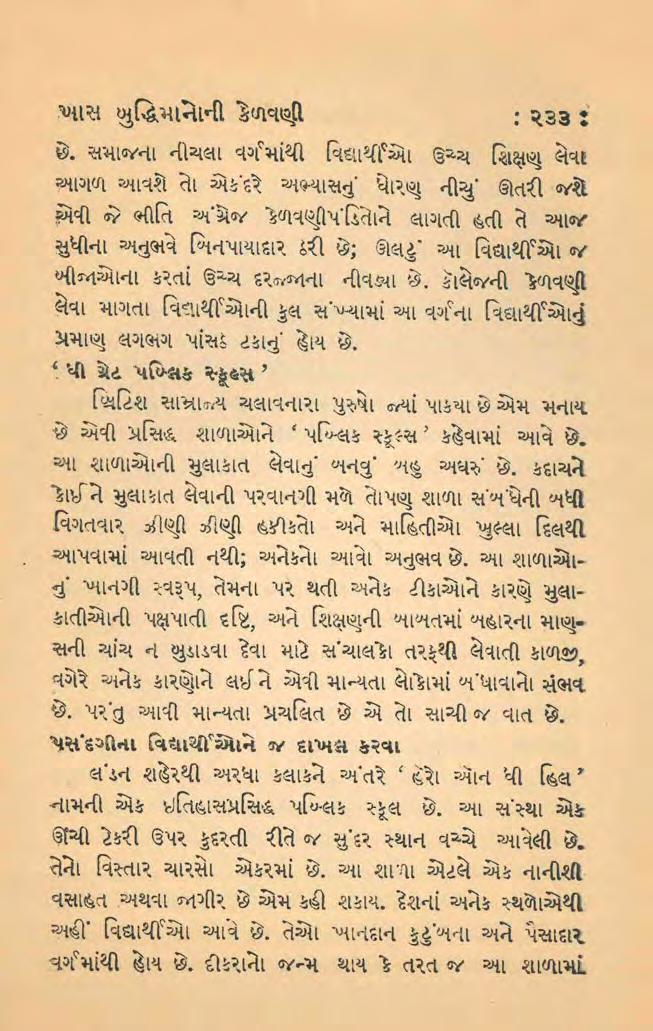 ખાસ બુદ્ધિમાનોની કેળવણી : ૨૩૩ :
છે. સમાજના નીચલા વર્ગમાંથી વિદ્યાર્થીઓ ઉચ્ચ શિક્ષણ લેવા
આગળ આવશે તો એકંદરે અભ્યાસનું ધોરણ નીચું ઊતરી જશે
એવી જે ભીતિ અંગ્રેજ કેળવણીપંડિતોને લાગતી હતી તે આજ
સુધીના અનુભવે બિનપાયાદાર ઠરી છે; ઊલટું આ વિદ્યાર્થીઓ જ
બીજાઓના કરતાં ઉચ્ચ દરજ્જાના નીવડ્યા છે. કૉલેજની કેળવણી
લેવા માગતા વિદ્યાર્થીઓની કુલ સંખ્યામાં આ વર્ગના વિદ્યાર્થીઓનું
પ્રમાણ લગભગ પાંસઠ ટકાનું હોય છે.
‘ ધી ગ્રેટ પબ્લિક સ્કૂલ્સ ’
બ્રિટિશ સામ્રાજ્ય ચલાવનારા પુરુષો જ્યાં પાક્યા છે એમ મનાય
છે એવી પ્રસિદ્ધ શાળાઓને ‘ પબ્લિક સ્કૂલ્સ ’ કહેવામાં આવે છે.
આ શાળાઓની મુલાકાત લેવાનું બનવું બહુ અઘરું છે. કદાચને
કોઈને મુલાકાત લેવાની પરવાનગી મળે તોપણ શાળા સંબંધેની બધી
વિગતવાર ઝીણી ઝીણી હકીકતો અને માહિતીઓ ખુલ્લા દિલથી
આપવામાં આવતી નથી; અનેકનો આવો અનુભવ છે. આ શાળાઓ-
નું ખાનગી સ્વરૂપ, તેમના પર થતી અનેક ટીકાઓને કારણે મુલા-
કાતીઓની પક્ષપાતી દૃષ્ટિ, અને શિક્ષણની બાબતમાં બહારના માણ-
સની ચાંચ ન બુડાડવા દેવા માટે સંચાલકો તરફથી લેવાતી કાળજી,
વગેરે અનેક કારણોને લઈને એવી માન્યતા લોકોમાં બંધાવાનો સંભવ
છે. પરંતુ આવી માન્યતા પ્રચલિત છે એ તો સાચી જ વાત છે.
પસંદગીના વિદ્યાર્થીઓને જ દાખલ કરવા
લંડન શહેરથી અરધા કલાકને અંતરે ‘ હૅરો ઑન ધી હિલ ’
નામની એક ઇતિહાસપ્રસિદ્ધ પબ્લિક સ્કૂલ છે. આ સંસ્થા એક
ઊંચી ટેકરી ઉપર કુદરતી રીતે જ સુંદર સ્થાન વચ્ચે આવેલી છે.
તેનો વિસ્તાર ચારસો એકરમાં છે. આ શાળા એટલે એક નાનીશી
વસાહત અથવા જાગીર છે એમ કહી શકાય. દેશનાં અનેક સ્થળોએથી
અહીં વિદ્યાર્થીઓ આવે છે. તેઓ ખાનદાન કુટુંબના અને પૈસાદાર
વર્ગમાંથી હોય છે. દીકરાનો જન્મ થાય કે તરત જ આ શાળામાં